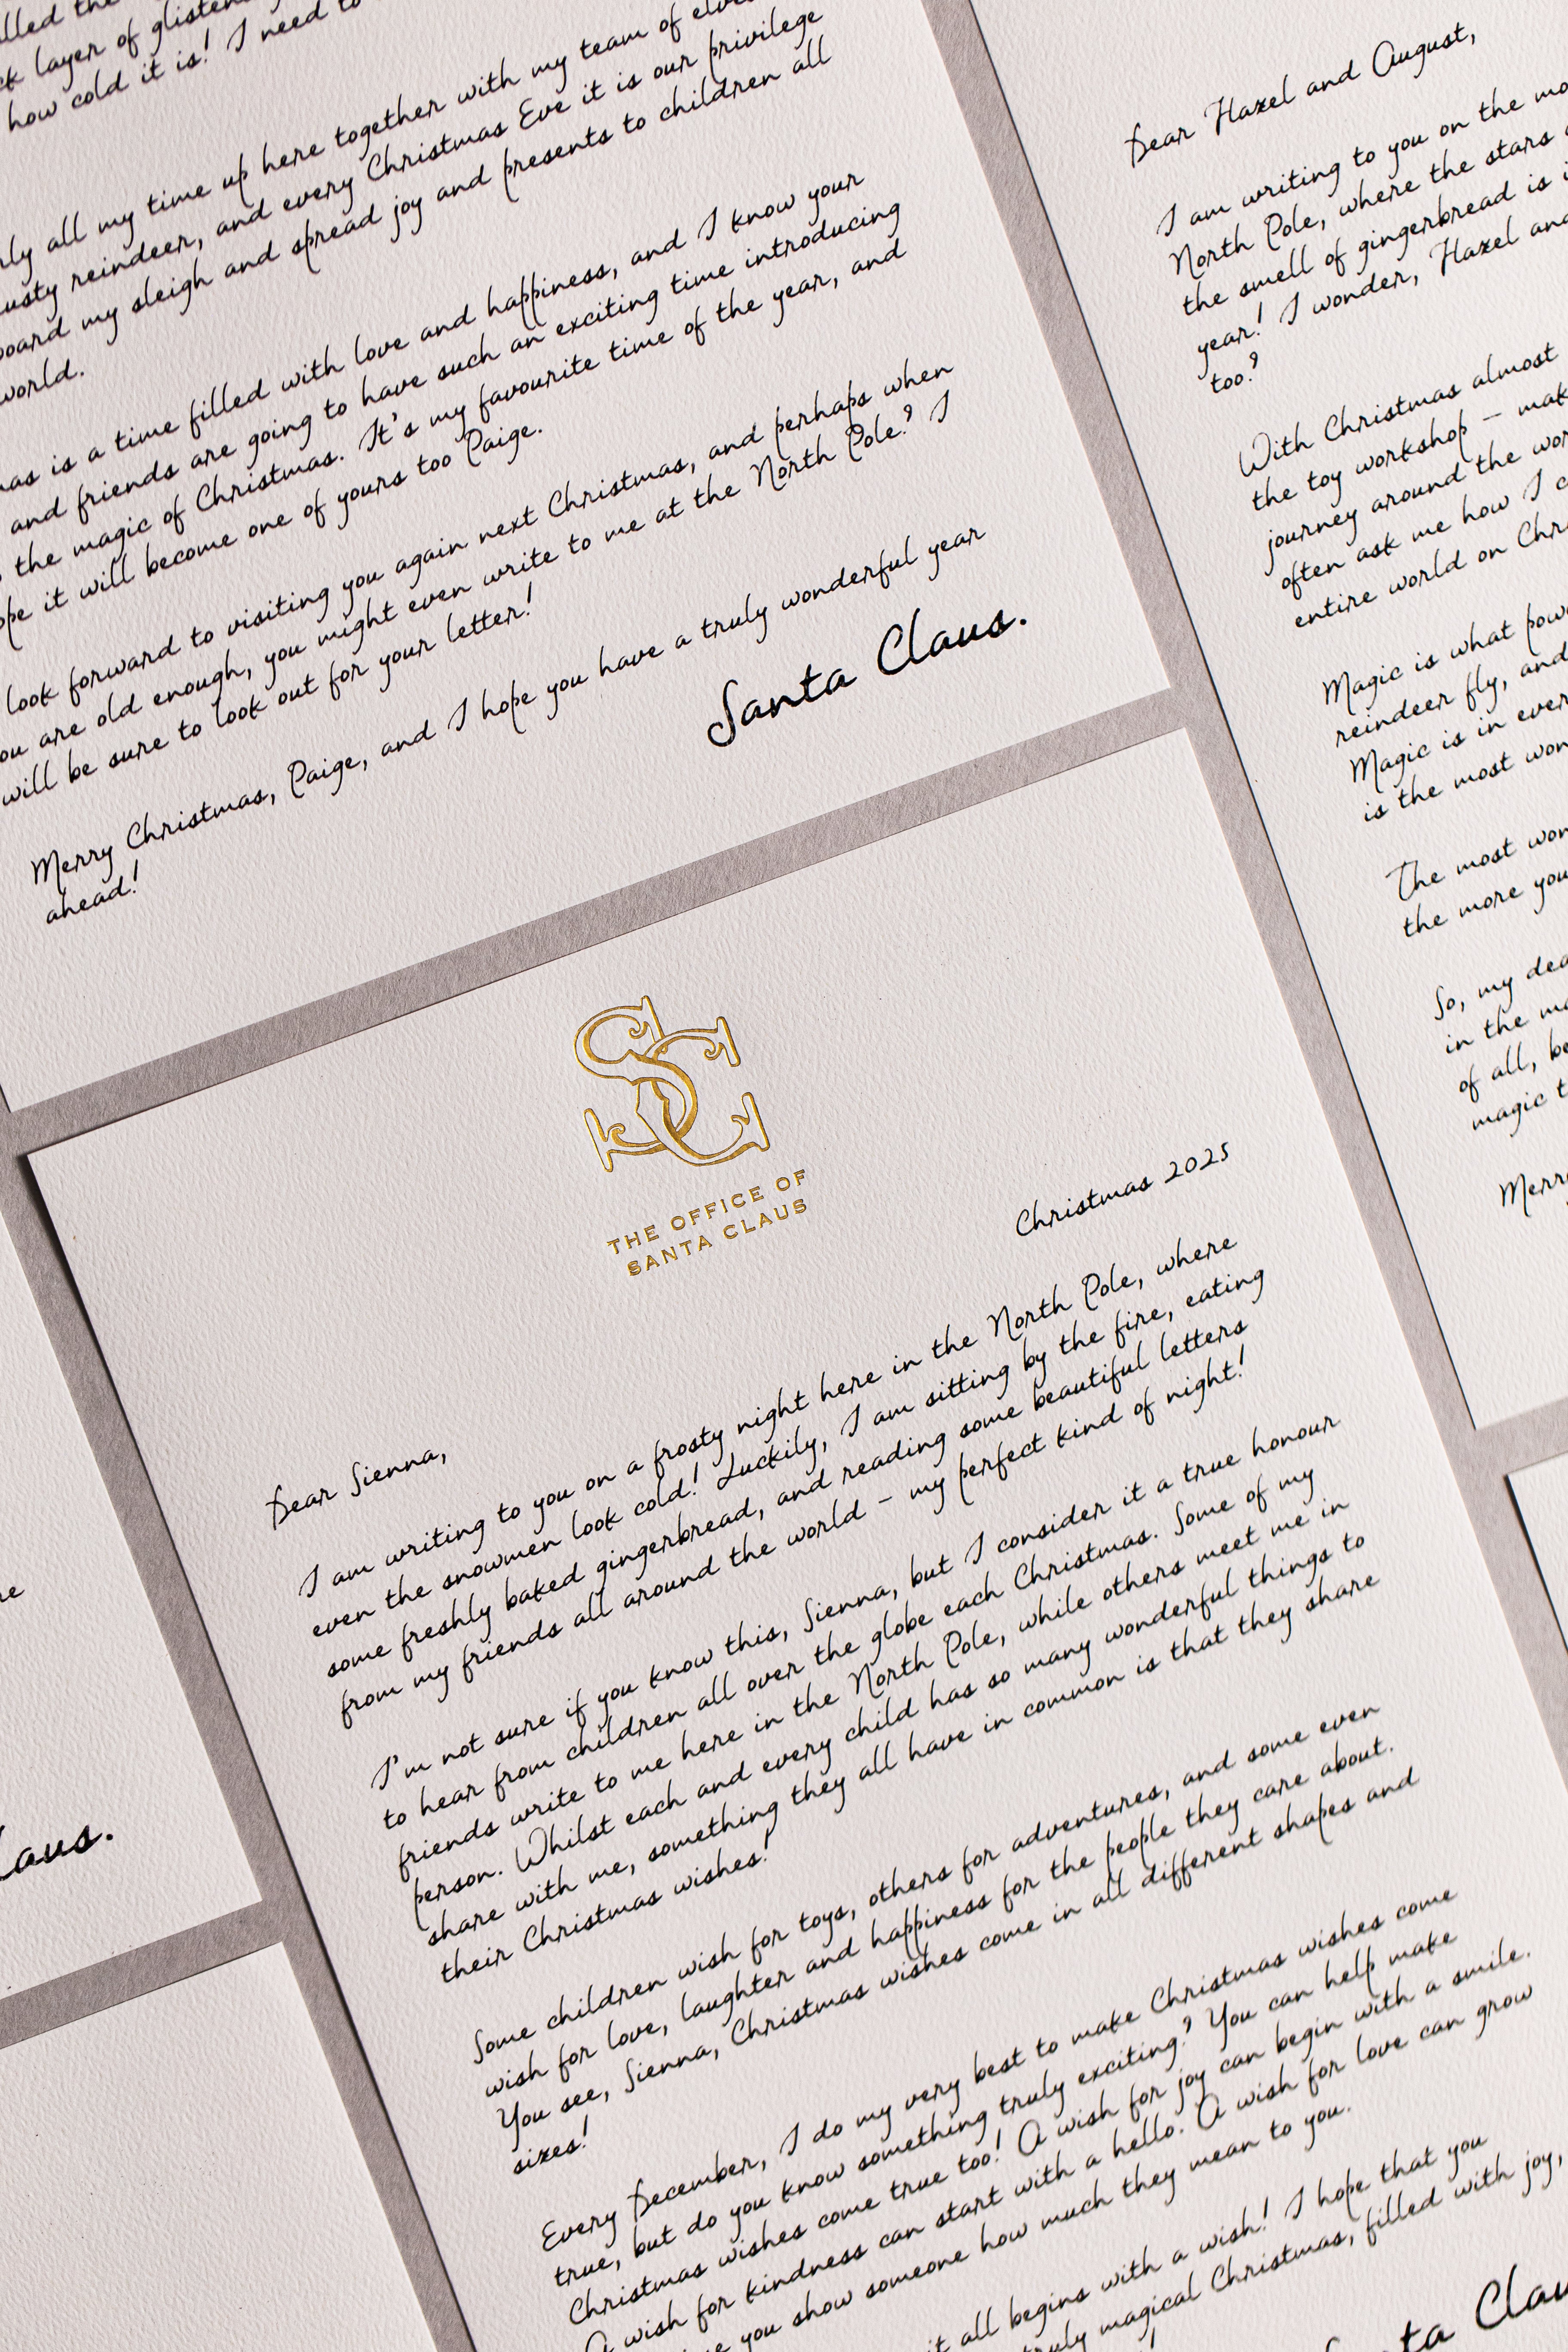 ck layer of
how cold it is! I need to
all my time up here together with my team of
reindeer, and every Christmas Eve it is our privilege
my sleigh and spread joy and presents to children all
world.
is a time filled with love and happiness, and I know your
and friends are going to have such an exciting time introducing
the magic of Christmas. It's my favourite time of the year, and
it will become one of yours too Paige.
look forward to visiting you again next Christmas, and perhaps when
you are old enough, you might even write to me at the North Pole? I
will be sure to look out for your letter!
Merry Christmas, Paige, and I hope you have a truly wonderful year
ahead!
Santa Claus.
Dear Hazel and August,
I am writing to you on the
North Pole, where the stars
the smell of gingerbread is
year! I wonder, Hazel and
too?
With Christmas almost
the toy workshop –
journey around the
often ask me how I
entire world on
Magic is what
reindeer fly, and
Magic is in
is the most
The most
the more you
So, my
in the
of all,
magic
THE OFFICE OF
SANTA CLAUS
Christmas 2025
Dear Sienna,
I am writing to you on a frosty night here in the North Pole, where
even the snowmen look cold! Luckily, I am sitting by the fire, eating
some freshly baked gingerbread, and reading some beautiful letters
from my friends all around the world – my perfect kind of night!
I'm not sure if you know this, Sienna, but I consider it a true honour
to hear from children all over the globe each Christmas. Some of my
friends write to me here in the North Pole, while others meet me in
person. Whilst each and every child has so many wonderful things to
share with me, something they all have in common is that they share
their Christmas wishes!
Some children wish for toys, others for adventures, and some even
wish for love, laughter and happiness for the people they care about.
You see, Sienna, Christmas wishes come in all different shapes and
sizes!
Every December, I do my very best to make Christmas wishes come
true, but do you know something truly exciting? You can help make
Christmas wishes come true too! A wish for joy can begin with a smile.
A wish for kindness can start with a hello. A wish for love can grow
you show someone how much they mean to you.
it all begins with a wish! I hope that you
truly magical Christmas, filled with joy,